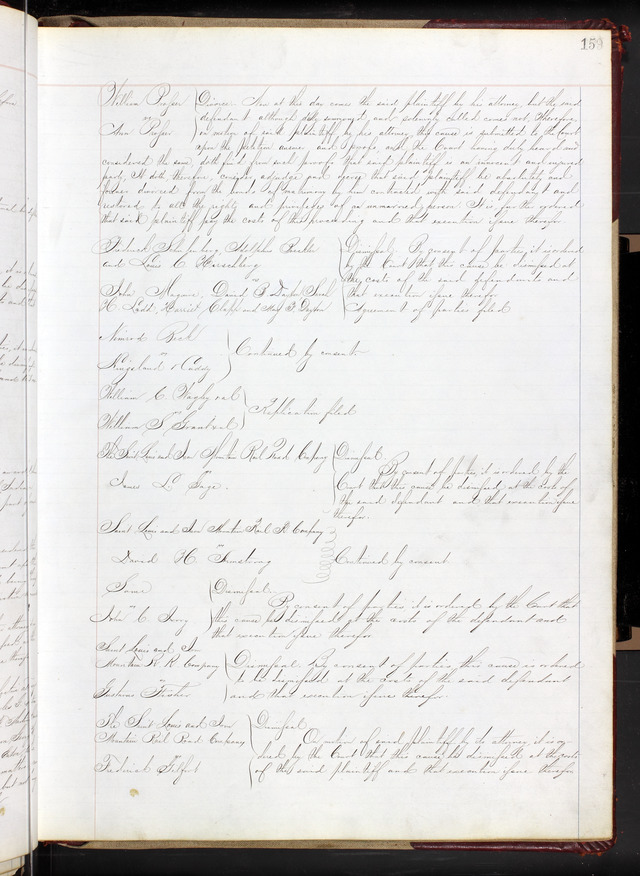 159
William Pieper } Divorce Now at this day comes the said plaintiff by his attorney, but the said
vs defendant although duly summoned and solemnly called comes not, Therefore,
Ann Pieper on motion of said plaintiff by his attorney this cause is submitted to the Court
upon the petition and proofs, and the Court having duly heard and
considered the same, doth find from such proofs that said plaintiff is an innocent and injured
party, It doth therefore, adjudge and decree that said plaintiff be absolutely and
forever divorced from the bonds of matrimony by him contracted with said defendant and
restored to all the rights and privileges of an unmarried person It is further ordered
that said plaintiff pay the costs of this proceeding and that execution issue therefor
Adolphus } Dismissed By consent of parties it is ordered
and Louis C Hirschberg by the Court that this cause be dismissed at
vs the costs of the said defendants and
John Magwire, David B that execution issue therefor
H Ladd, Harriet Clapp and Mary B Agreement of parties filed
Nimrod
vs } Continued by consent
Kingsland &
William C et al
vs } Replication filed
William S Grant et al
The Saint Louis and Iron Mountain Rail Road Company } Dismissed
vs By consent of parties it is ordered by the
James Court that this cause be dismissed at the costs of
the said defendant and that execution issue
therefor.
Saint Louis and Iron Mountain Rail R Company
vs
David H Armstrong Continued by consent
Same } Dismissed
vs By consent of parties it is ordered by the Court that
John C Ivory this cause be dismissed at the costs of the defendant and
that execution issue therefor
Saint Louis and Iron
Mountain R R Company } Dismissed By consent of parties this cause is ordered
vs to be dismissed at the costs of the said defendant
Gustavus Fisher and that execution issue therefor
The Saint Louis and Iron } Dismissed
Mountain Rail Road Company On motion of said plaintiff by its attorney it is or
vs dered by the Court that this cause be dismissed at the costs
Frederick of the said plaintiff and that execution issue therefor